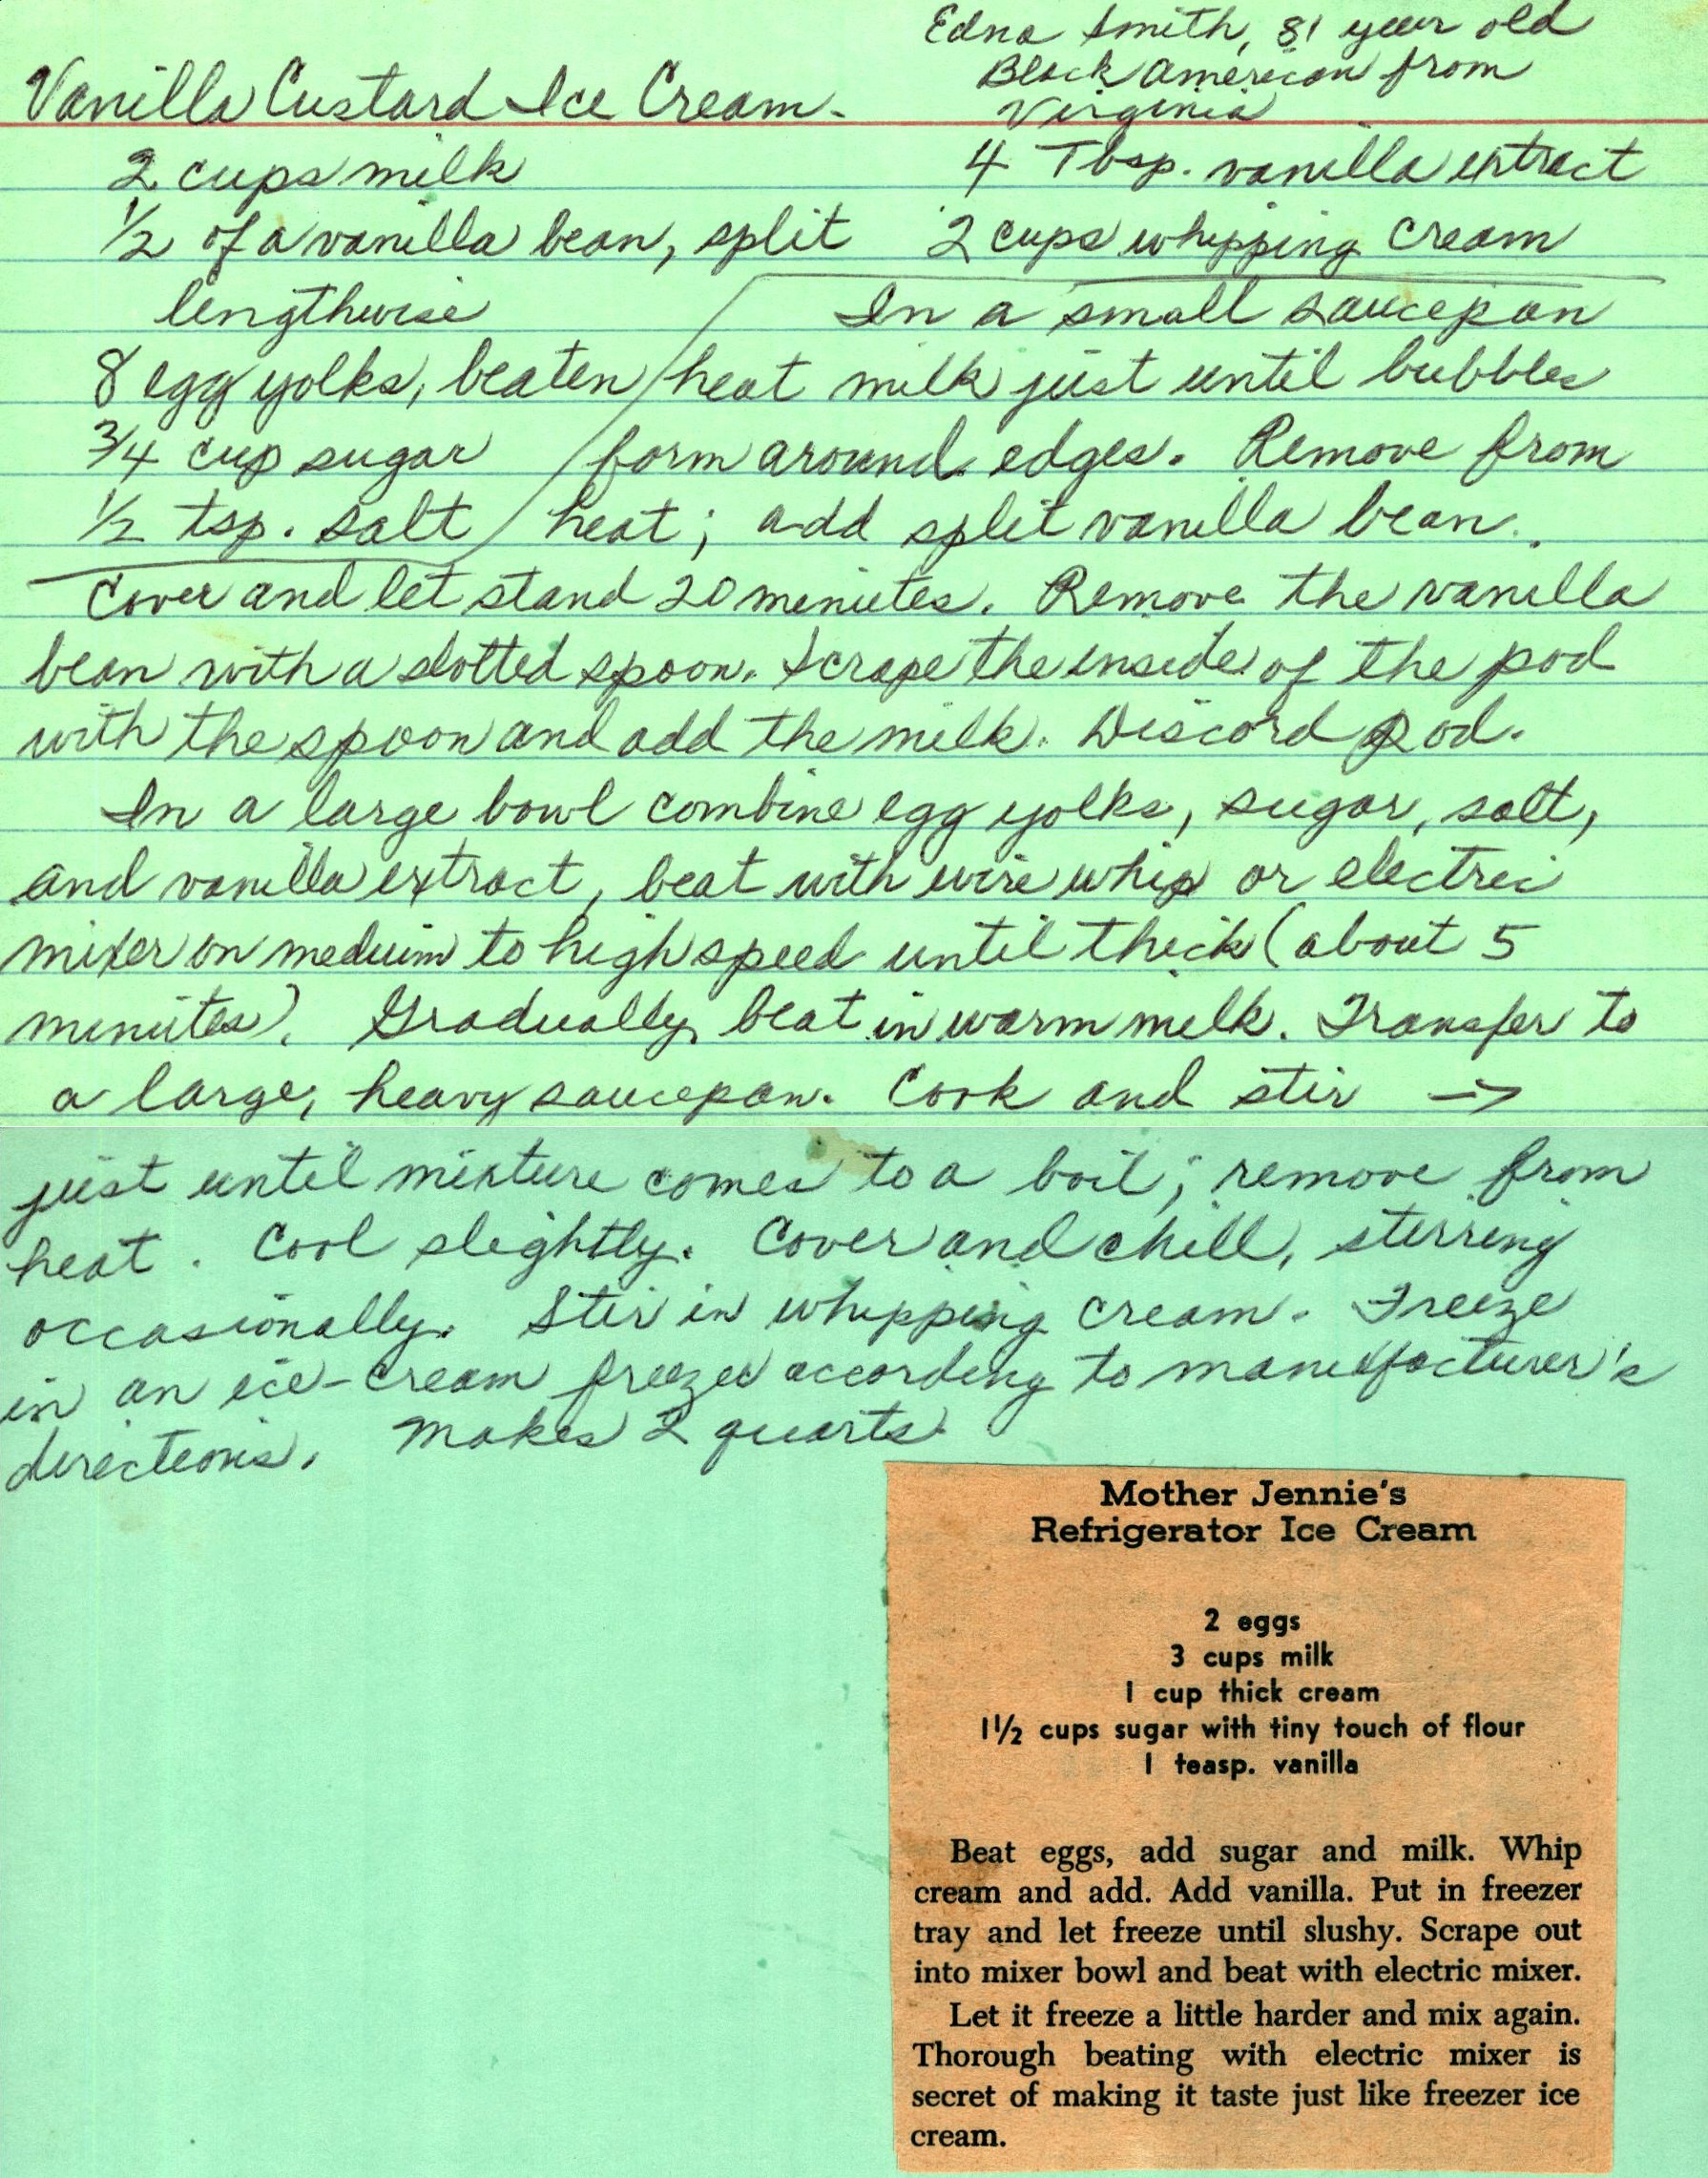 Edna Smith, 81 year old
Black American from
Virginia
Vanilla Custard Ice Cream.
2 cups milk
1/2 of a vanilla bean, split
lengthwise
8 egg yolks, beaten
3/4 cup sugar
1/2 tsp. salt
4 Tbsp. vanilla extract
2 cups whipping cream
In a small saucepan
heat milk just until bubbles
form around edges. Remove from
heat; add split vanilla bean.
Cover and let stand 20 minutes. Remove the vanilla
bean with a slotted spoon. Scrape the inside of the pod
with the spoon and add the milk. Discard pod.
In a large bowl combine egg yolks, sugar, salt,
and vanilla extract, beat with wire whip or electric
mixer on medium to high speed until thick (about 5
minutes). Gradually beat in warm milk. Transfer to
a large, heavy saucepan. Cook and stir →
just until mixture comes to a boil; remove from
heat. Cool slightly. Cover and chill, stirring
occasionally. Stir in whipping cream. Freeze
in an ice-cream freezer according to manufacturer's
directions. Makes 2 quarts.
Mother Jennie's
Refrigerator Ice Cream
2 eggs
3 cups milk
1 cup thick cream
1 1/2 cups sugar with tiny touch of flour
1 teasp. vanilla
Beat eggs, add sugar and milk. Whip
cream and add. Add vanilla. Put in freezer
tray and let freeze until slushy. Scrape out
into mixer bowl and beat with electric mixer.
Let it freeze a little harder and mix again.
Thorough beating with electric mixer is
secret of making it taste just like freezer ice
cream.